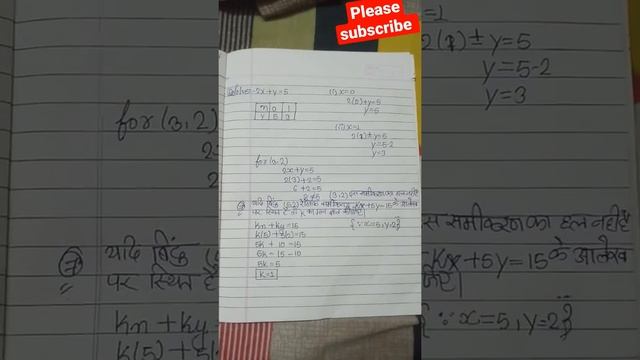 Please
subscribe
2x+y=5
(i) x=0
2(0)+y=5
y=5
x 0 1
y 5 3
(ii) x=1
2(1)+y=5
y=5-2
y=3
for (3,2)
2x+y=5
2(3)+2=5
6+2=5
8≠5 (3,2) इस समीकरण का हल नहीं है
यदि बिंदु (5,2) समीकरण Kx+5y=15 के आलेख
पर स्थित है K का मान ज्ञात कीजिए।
kx+ky=15 {∵x=5,y=2}
k(5)+5(2)=15
5k+10=15
5k=15-10
5k=5
k=1
=1
2(1)±y=5
y=5-2
y=3
for (3,2)
स समीकरण का हल नहीं है
यदि बिंदु
Kx+5y=15 के आलेख
पर स्थित है
kx+ky
{∵x=5,y=2}
k(5)+5(